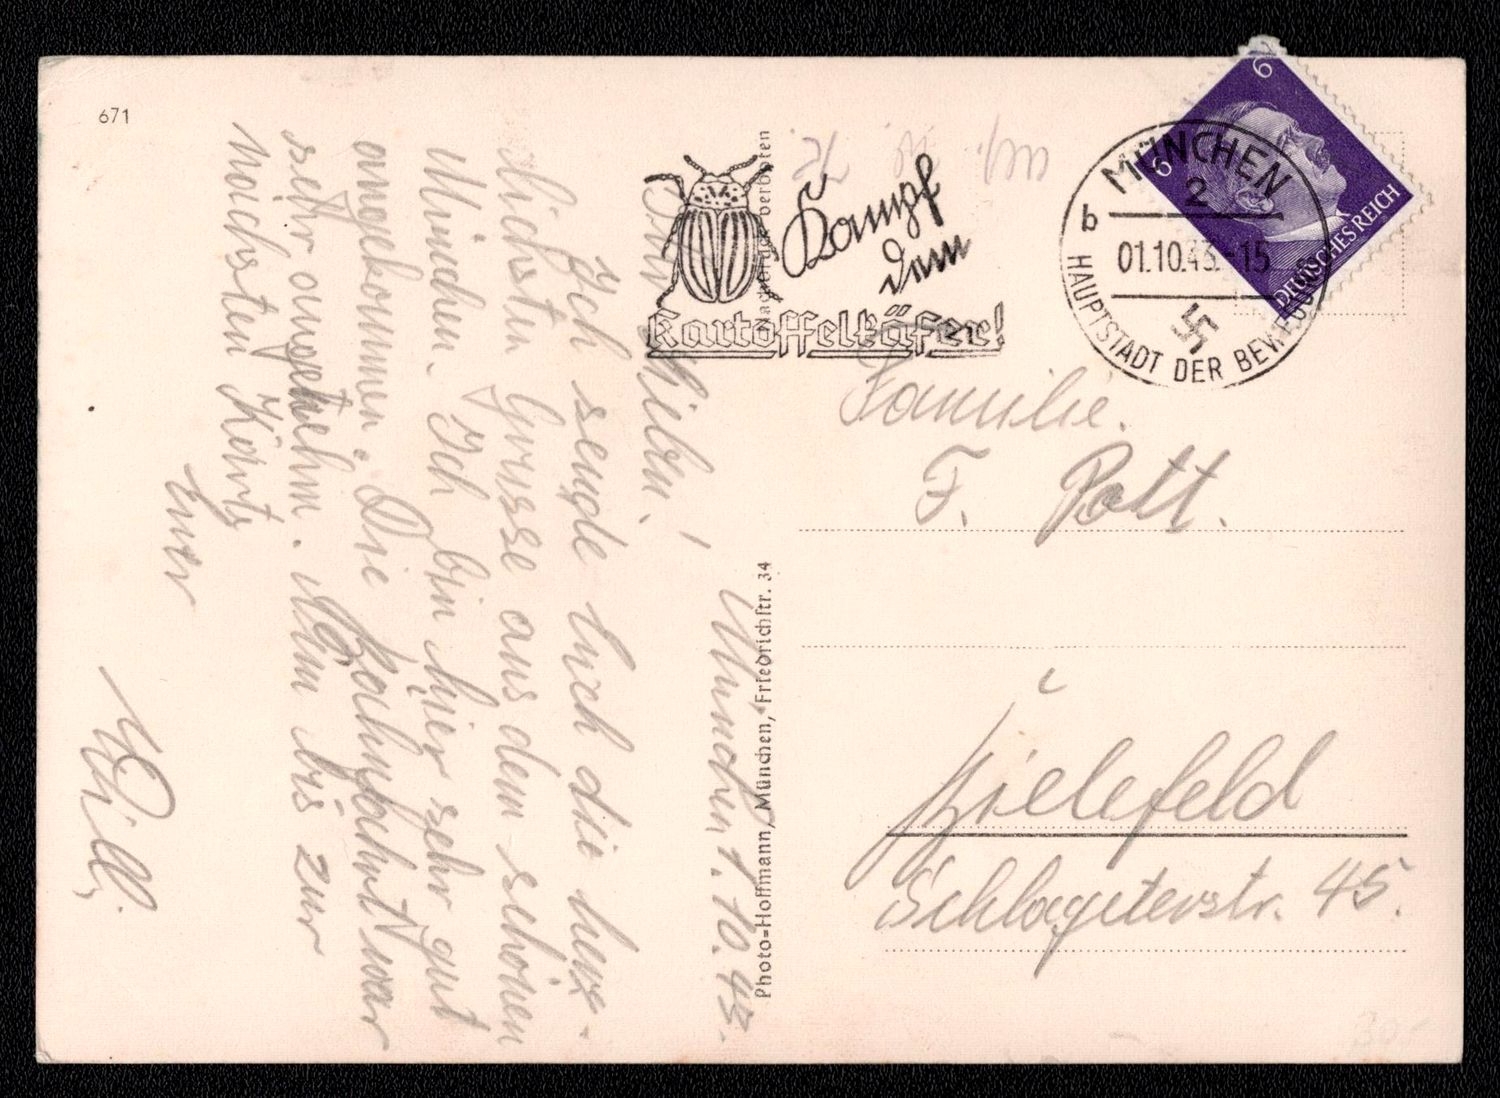 671
Nachdruck verboten
Photo-Hoffmann, München, Friedrichstr. 34
Kampf
dem
Kartoffelkäfer!
MÜNCHEN
2
b
01.10.43.-15
HAUPTSTADT DER BEWEGUNG
6
6
DEUTSCHES REICH
Familie.
F. Pott.
Bielefeld
Schlageterstr. 45.
München, 1. 10. 43.
Ihr Lieben!
Ich sende Euch die herz-
lichsten Grüsse aus dem schönen
München. Ich bin hier sehr gut
angekommen. Die Bahnfahrt war
sehr angenehm. Nun bis zur
nächsten Karte
Euer
Willi.